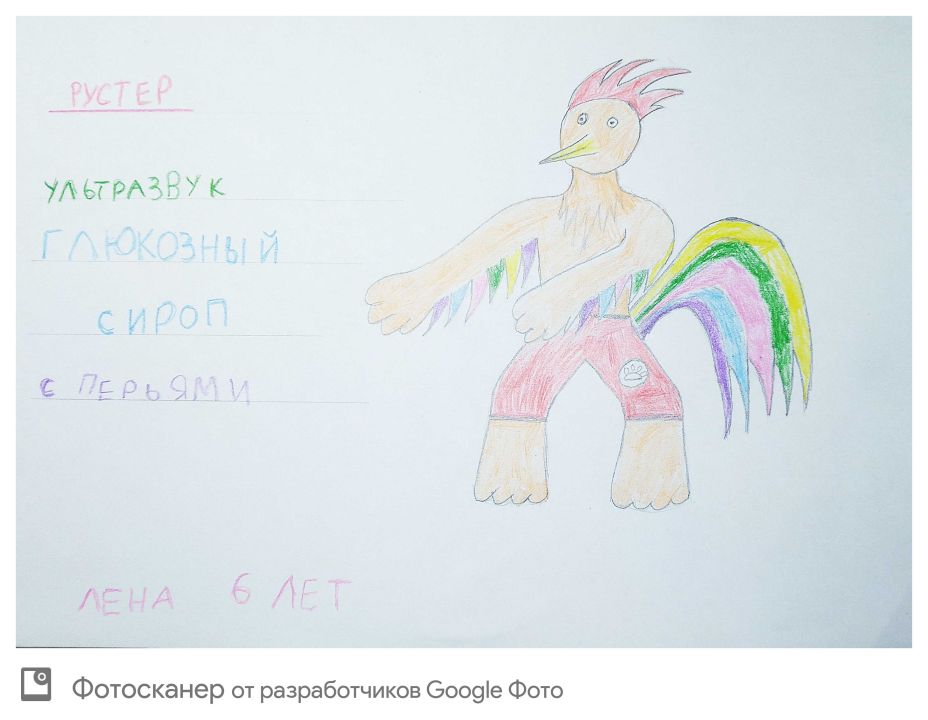 РУСТЕР
УЛЬТРАЗВУК
ГЛЮКОЗНЫЙ
СИРОП
С ПЕРЬЯМИ
ЛЕНА 6 ЛЕТ
Фотосканер от разработчиков Google Фото